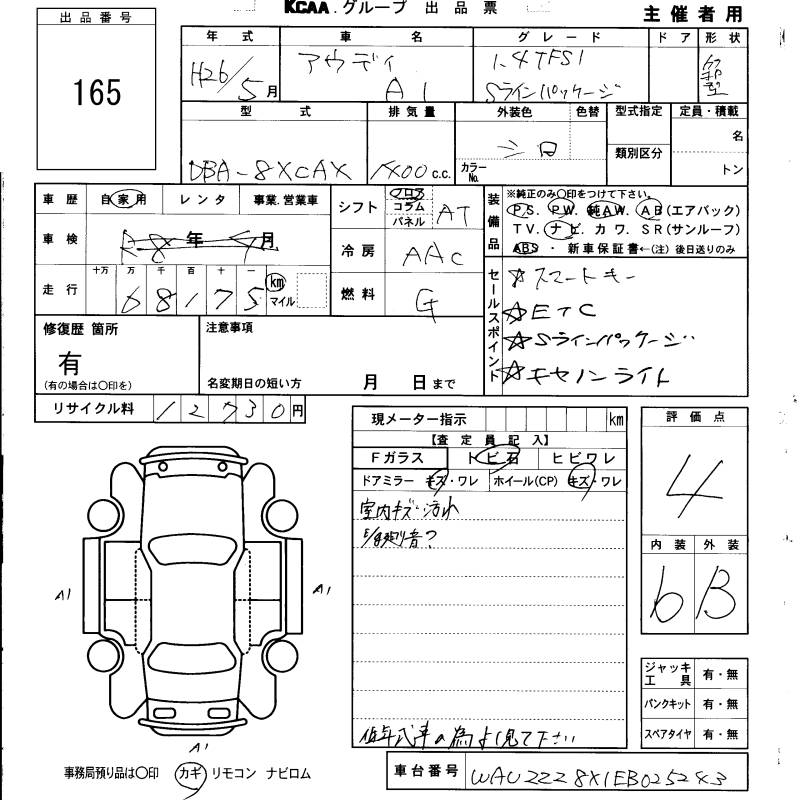 KCAA. グループ 出品票
主催者用
出品番号
165
年式 車名 グレード ドア 形状
H26/5月 アウディ A1 1.4TFSI Sラインパッケージ
型式 排気量 外装色 色替 型式指定 定員・積載
DBA-8XCAX 1400c.c. シロ カラーNo. 類別区分 名 トン
車歴 自家用 レンタ 事業.営業車
車検 R-8年 月
走行 十万 万 千 百 十 一
68175 km マイル
シフト フロア コラム パネル AT
冷房 AAC
燃料 G
装備品
※純正のみ○印をつけて下さい。
PS. PW. 純AW. AB(エアバック)
TV. ナビ. カワ. SR(サンルーフ)
ABS ・ 新車保証書←(注) 後日送りのみ
セールスポイント
☆スマートキー
☆ETC
☆Sラインパッケージ
☆キセノンライト
修復歴 箇所
有
(有の場合は○印を)
注意事項
名変期日の短い方 月 日まで
リサイクル料 12730円
現メーター指示 km
【査定員記入】
Fガラス トビ石 ヒビワレ
ドアミラー キズ・ワレ ホイール(CP) キズ・ワレ
室内キズ・汚れ
低年式車の為よく見て下さい
評価点
4
内装 外装
b B
A1
A1
A1
ジャッキ工具 有・無
パンクキット 有・無
スペアタイヤ 有・無
事務局預り品は○印 カギ リモコン ナビロム
車台番号 WAUZZZ8X1EB025243